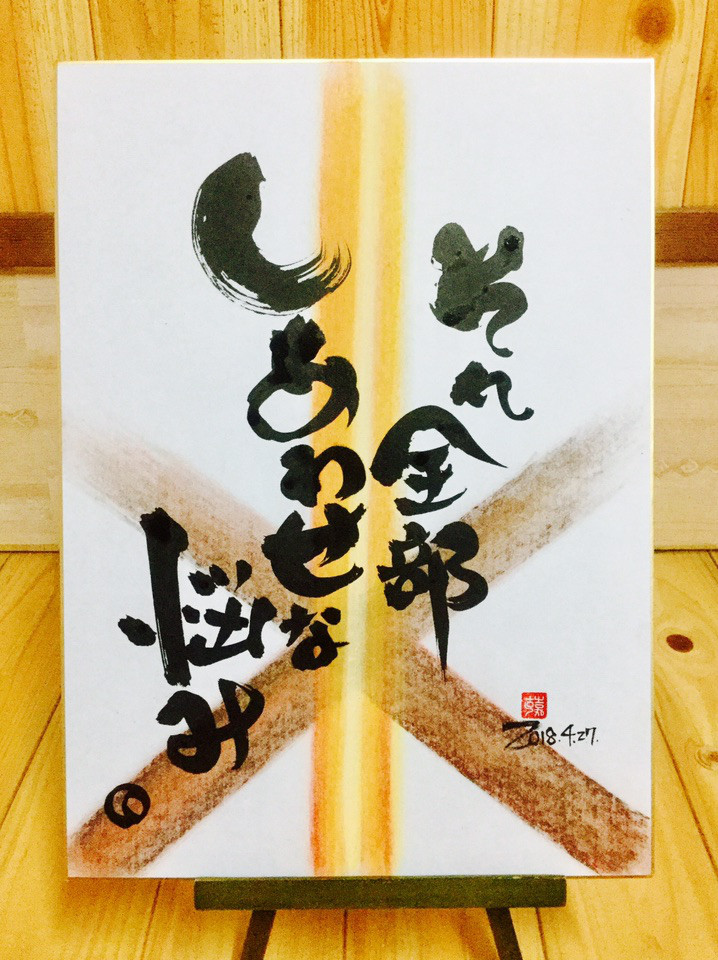 それ全部
しあわせな
悩み。
2018.4.27.